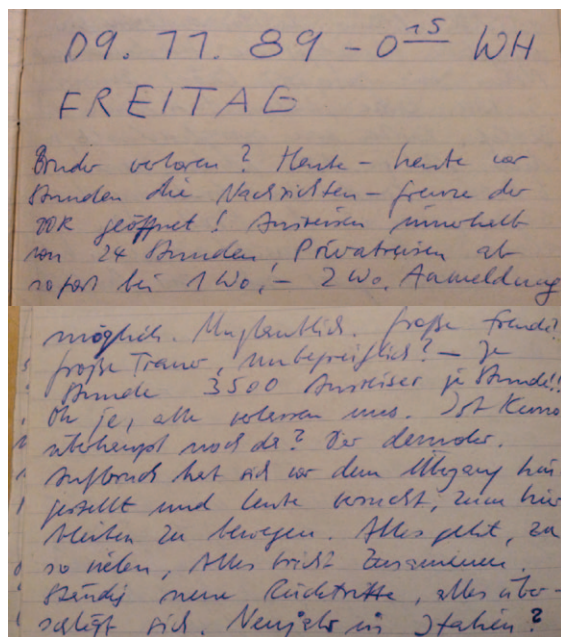 09. 11. 89 - 0 15 WH
FREITAG
Bruder verloren? Heute - heute vor
Stunden die Nachrichten - Grenze der
DDR geöffnet! Ausreisen innerhalb
von 24 Stunden! Privatreisen ab
sofort bei 1 Wo. - 2 Wo. Anmeldung
möglich. Unglaublich. Große Freude!
große Trauer, unbegreiflich? - Je
Stunde 3500 Ausreiser je Stunde!!
Oh je, alle verlassen uns. Ist
überhaupt noch da? Der demokr.
Aufbruch hat sich vor dem Übergang hin
gestellt und Leute versucht, zum hier
bleiben zu bewegen. Alles geht, zu
so vielen, Alles bricht zusammen.
Ständig neue Rücktritte, alles über-
schlägt sich. Neujahr in Italien?